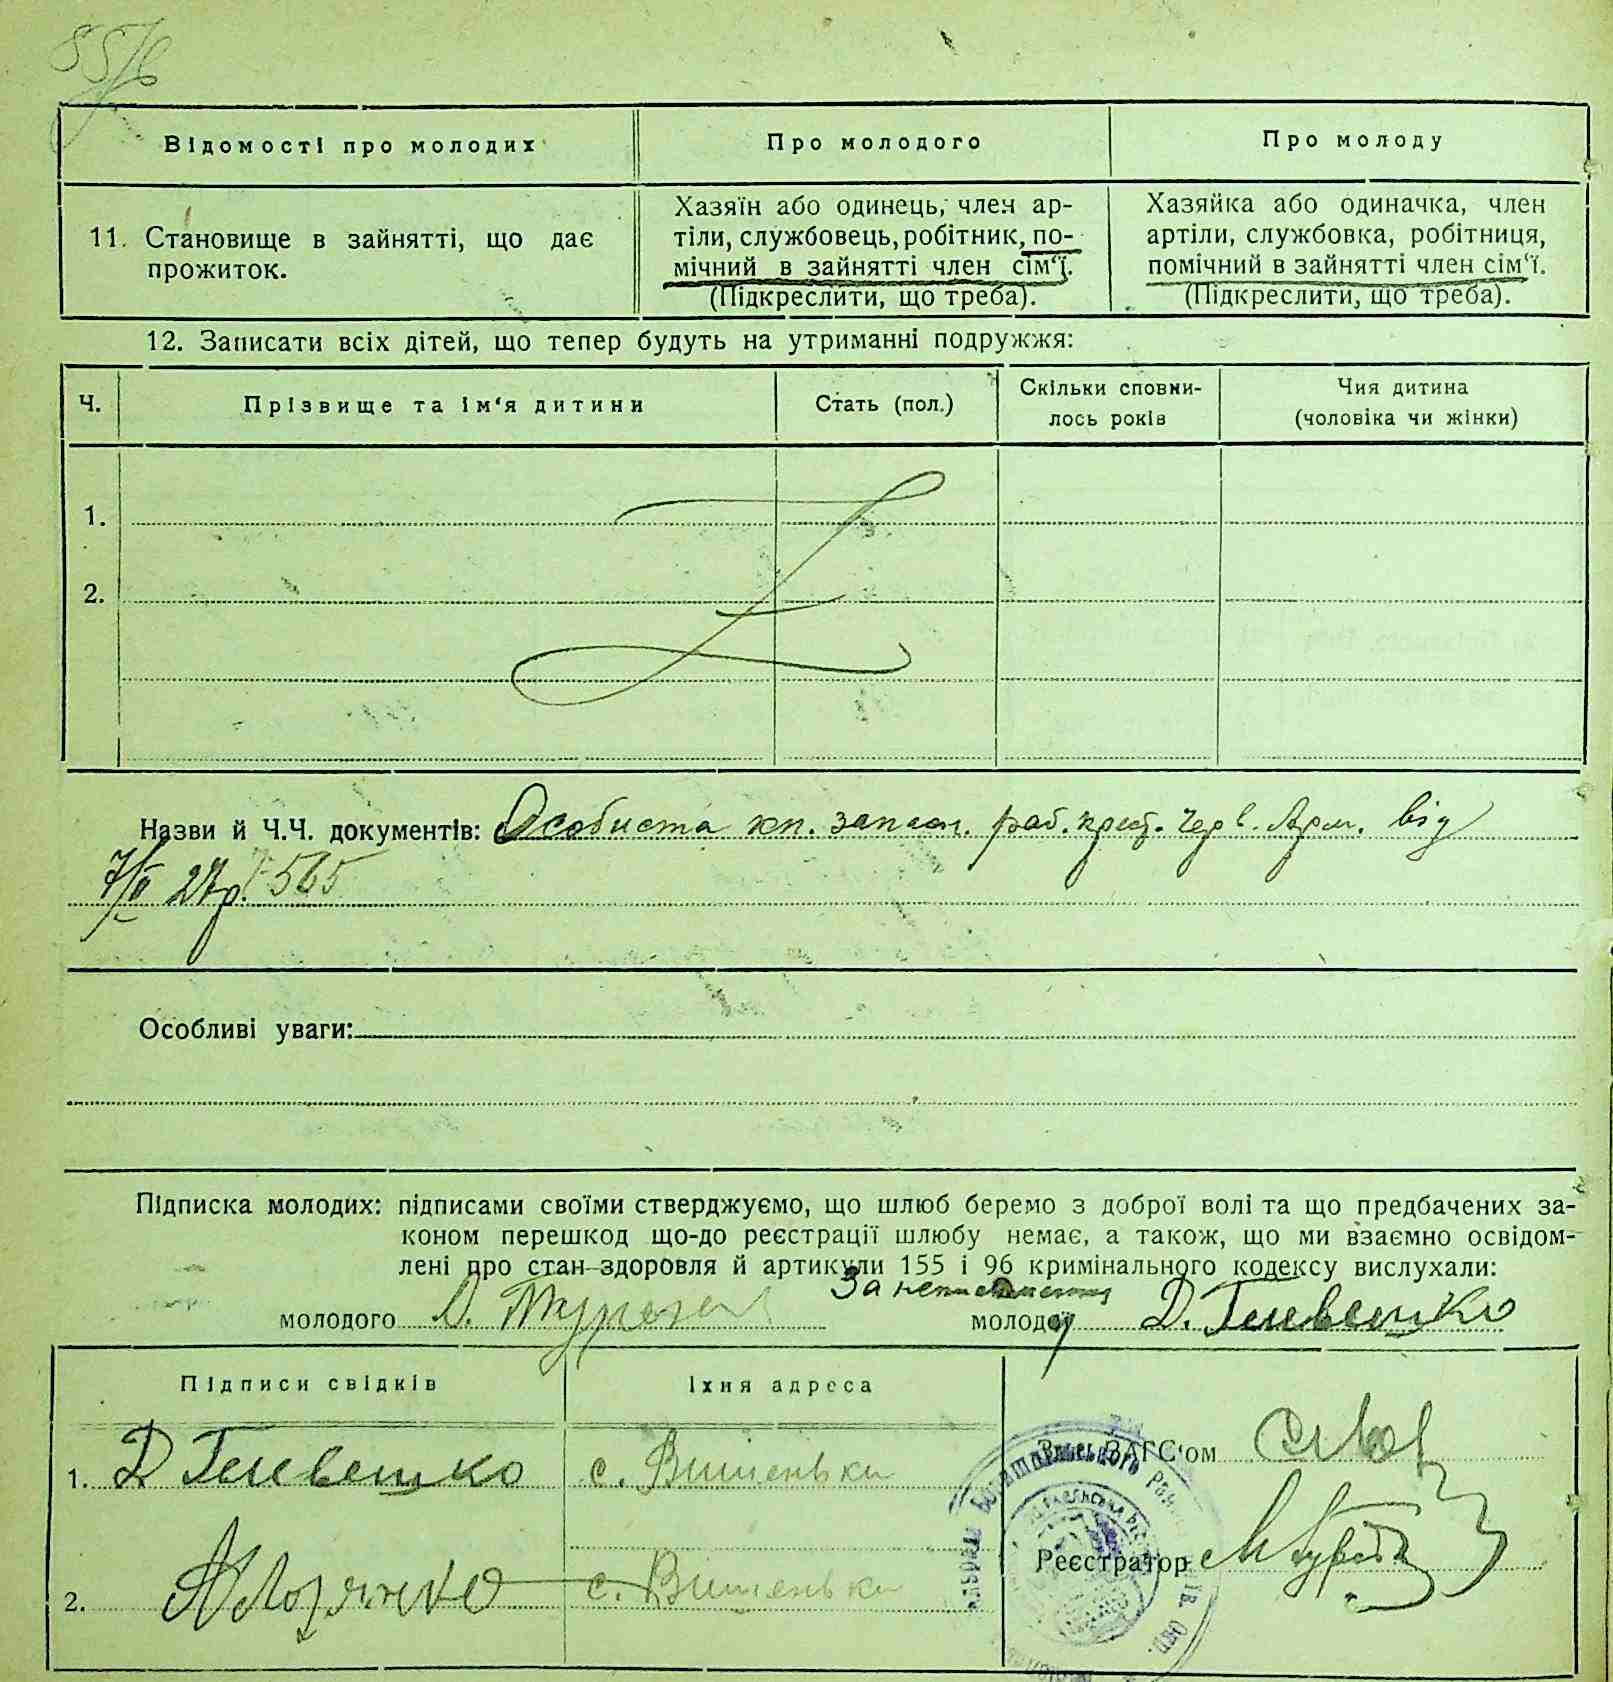 Відомості про молодих
Про молодого
Про молоду
11. Становище в зайнятті, що дає
прожиток.
Хазяїн або одинець, член ар-
тіли, службовець, робітник, по-
мічний в зайнятті член сім‘ї.
(Підкреслити, що треба).
Хазяйка або одиначка, член
артіли, службовка, робітниця,
помічний в зайнятті член сім‘ї.
(Підкреслити, що треба).
12. Записати всіх дітей, що тепер будуть на утриманні подружжя:
Ч.
Прізвище та ім‘я дитини
Стать (пол.)
Скільки сповни-
лось років
Чия дитина
(чоловіка чи жінки)
1.
2.
Назви й Ч.Ч. документів: Особиста кн. запасн. раб. крест. Черв. Арм. від
7/II 27р. 565
Особливі уваги:
Підписка молодих: підписами своїми стверджуємо, що шлюб беремо з доброї волі та що предбачених за-
коном перешкод що-до реєстрації шлюбу немає, а також, що ми взаємно освідом-
лені про стан здоровля й артикули 155 і 96 кримінального кодексу вислухали:
молодого
За неписьменну
молодої
Підписи свідків
Їхня адреса
1.
с. Вишеньки
Зав. ЗАГС‘ом
2.
с. Вишеньки
Реєстратор